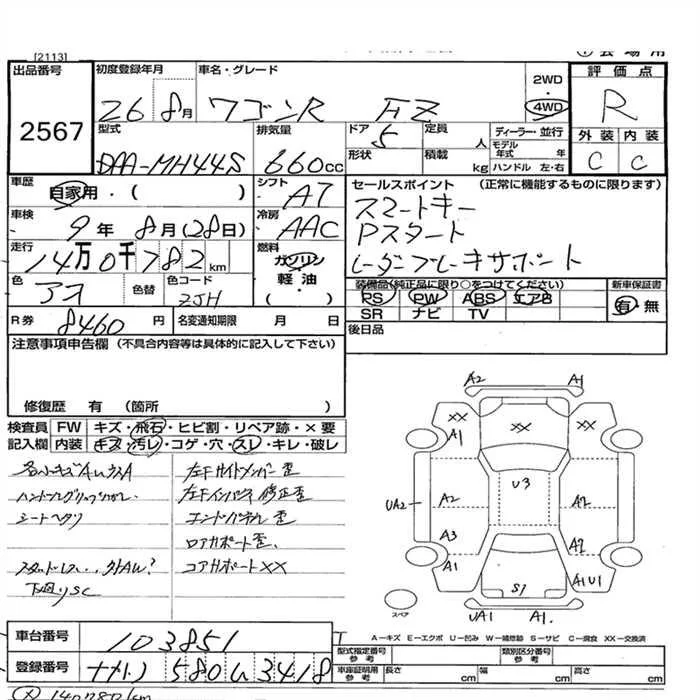 [2113]
出品番号
2567
初度登録年月
26 8月
車名・グレード
ワゴンR FZ
2WD
・
4WD
評価点
R
外装 内装
C C
型式
DAA-MH44S
排気量
660cc
ドア
5
形状
定員 人
積載 kg
ディーラー・並行
モデル年式 年
ハンドル 左・右
車歴
自家用・( )
シフト
AT
車検
9年 8月(28日)
冷房
AAC
走行
14万0千782km
燃料
ガソリン
軽油
色
アオ
色替
色コード
ZJH
R券
8460円
名変通知期限 月 日
セールスポイント (正常に機能するものに限ります)
スマートキー
Pスタート
レーダーブレーキサポート
装備品(純正品に限り○をつけてください)
PS PW ABS エアB
SR ナビ TV
新車保証書
有・無
後日品
注意事項申告欄(不具合内容等は具体的に記入して下さい)
修復歴 有 (箇所
検査員記入欄
FW キズ・飛石・ヒビ割・リペア跡・×要
内装 キズ・汚レ・コゲ・穴・スレ・キレ・破レ
シートヘタリ
下廻りSC
左Fサイドメンバー歪
左Fインパネ修正歪
エンドパネル歪
ロアサポート歪
コアサポートXX
A2 A1
XX XX XX
A1
U3
UA2 A2 A2
A3 A2
A1 S1 A1U1
UA1 A1
スペア
A-キズ E-エクボ U-凹み W-補修跡 S-サビ C-腐食 XX-交換済
車台番号
103851
登録番号
580 3418
型式指定番号
参考
類別区分番号
参考
車庫証明用
参考
長さ cm
幅 cm
高さ cm
140782km